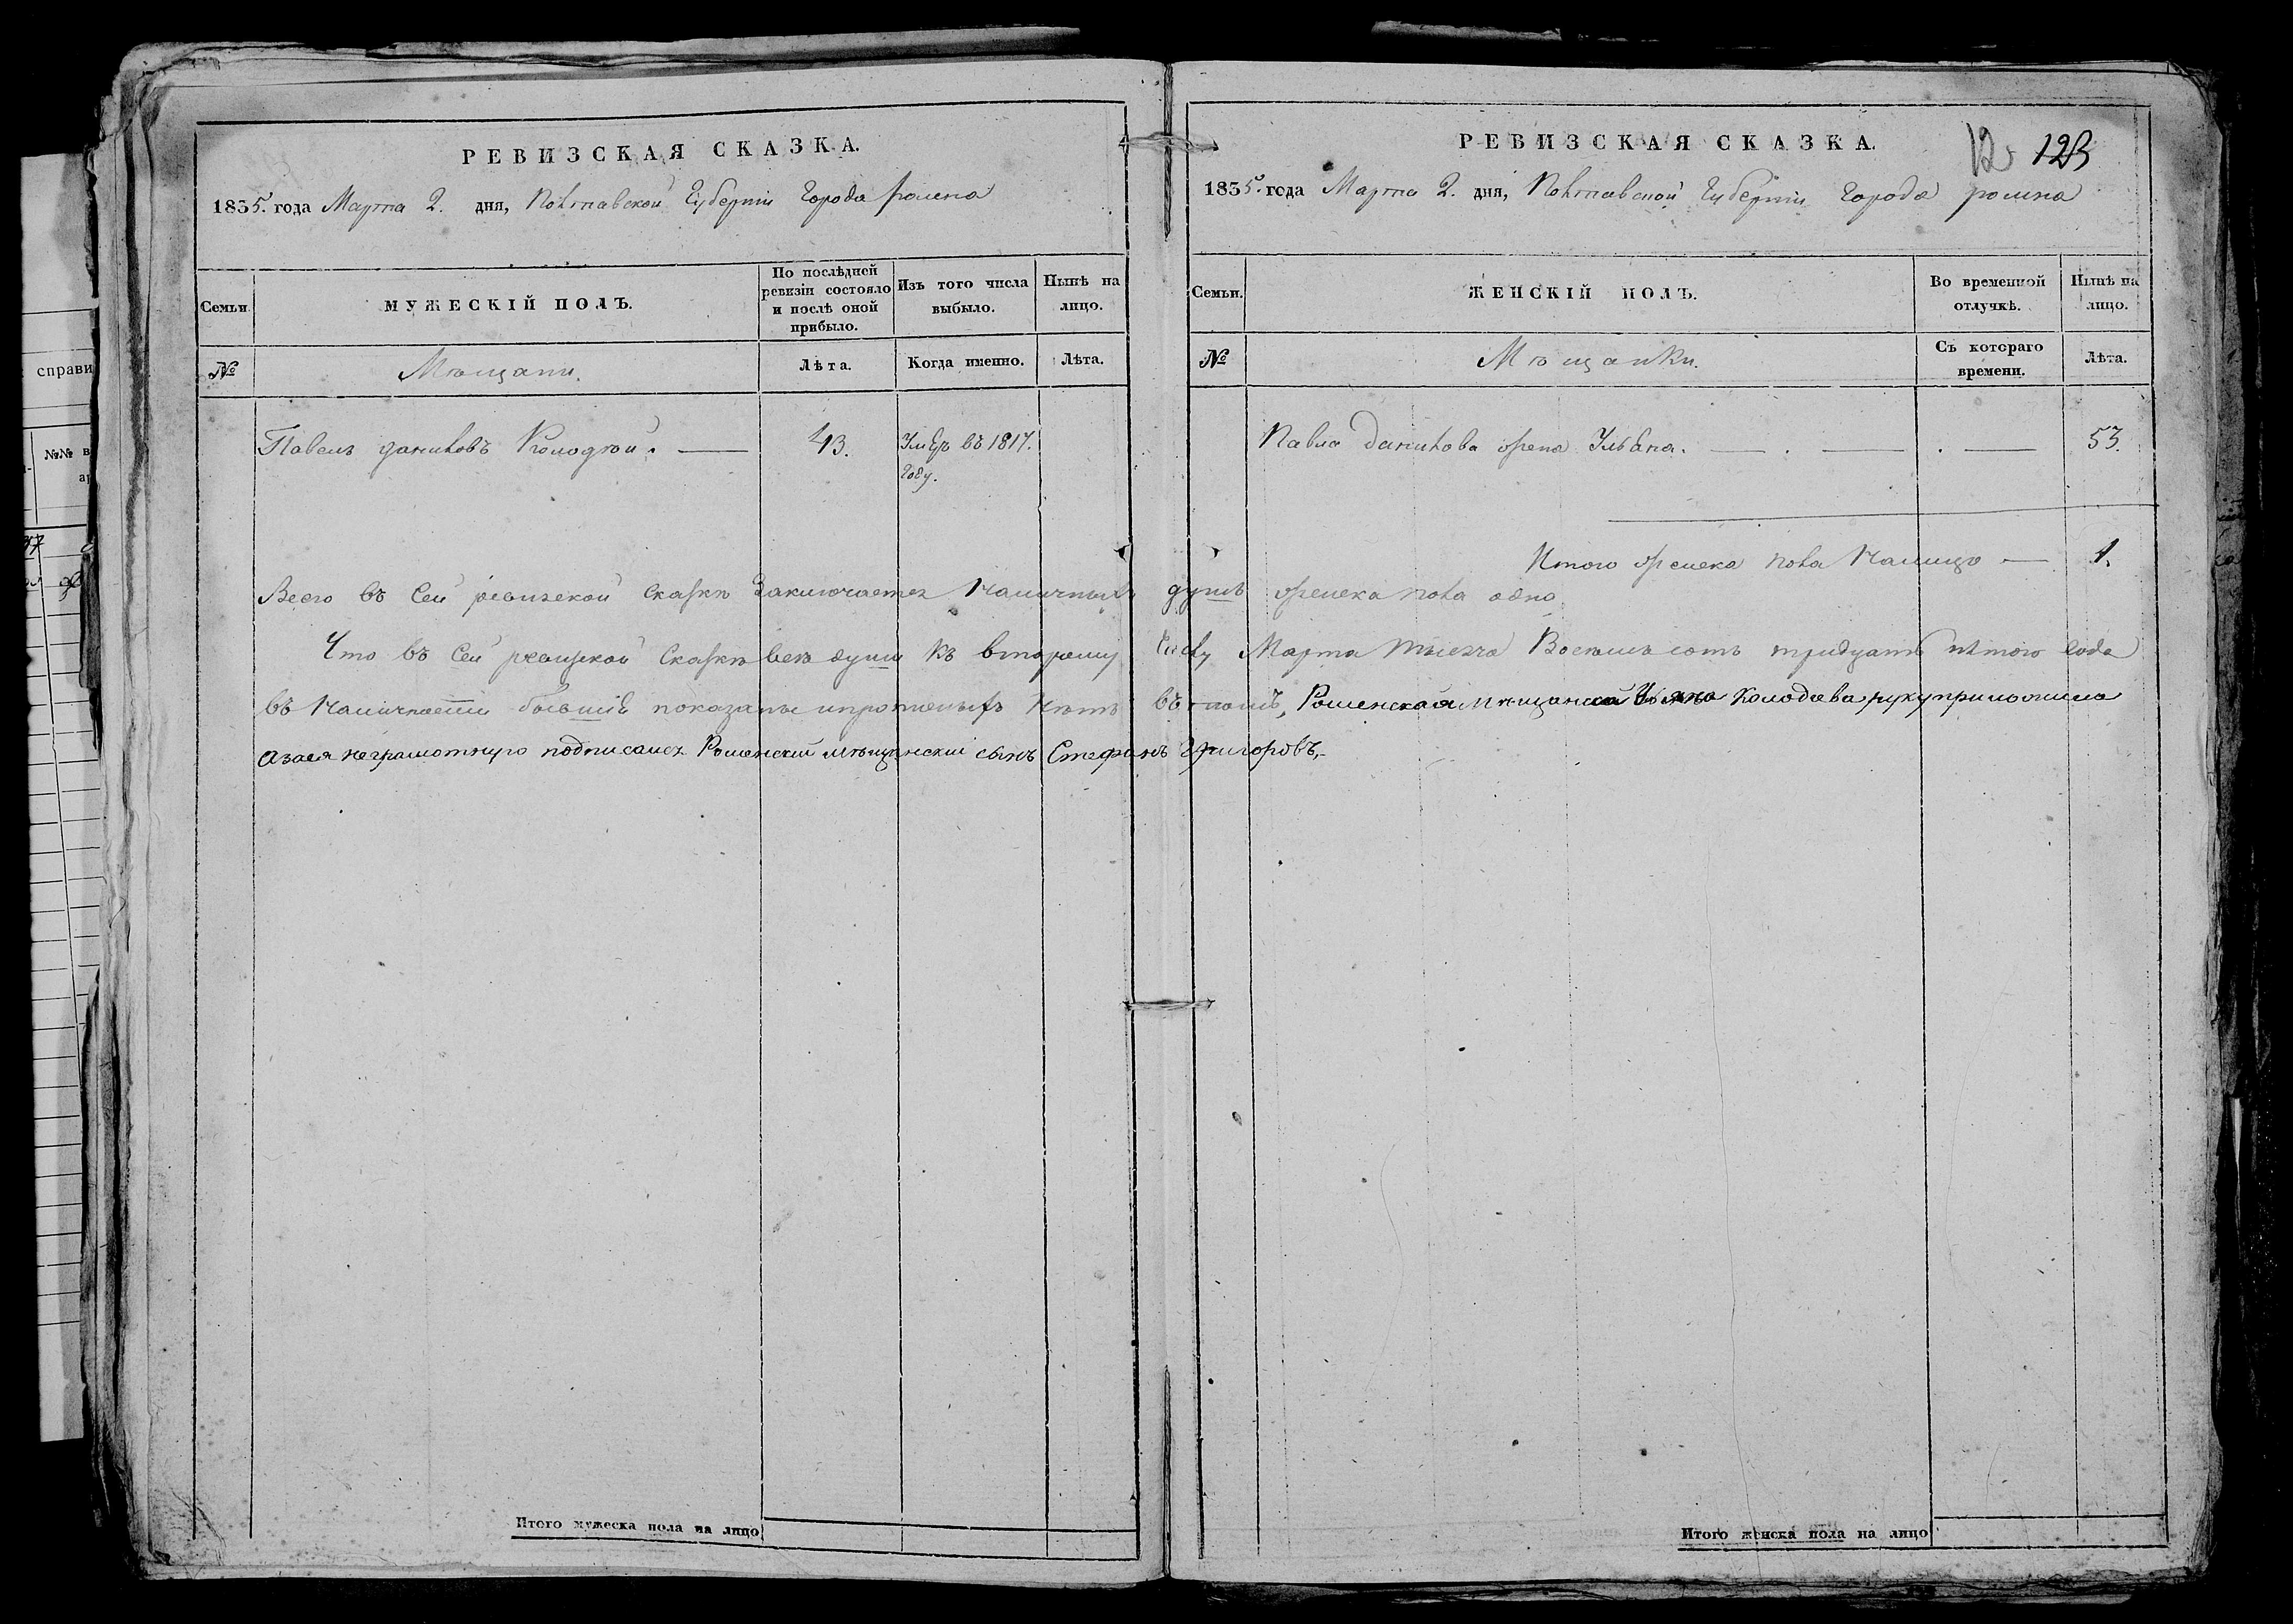 РЕВИЗСКАЯ СКАЗКА.
1835. года Марта 2. дня, Полтавской Губерніи Города ромна
Семьи
МУЖЕСКІЙ ПОЛЪ.
По послѣдней ревизіи состояло и послѣ оной прибыло.
Изъ того числа выбыло.
Нынѣ на лицо.
№
Мѣщани.
Лѣта.
Когда именно.
Лѣта.
Павелъ даниловъ Колодѣй. —
43.
Умеръ въ 1817. Году.
Итого мужеска пола на лицо
РЕВИЗСКАЯ СКАЗКА.
12 123
1835. года Марта 2. дня, Полтавской Губерніи Города ромна
Семьи.
ЖЕНСКІЙ ПОЛЪ.
Во временной отлучкѣ.
Нынѣ на лицо.
№
Мѣщанки.
Съ котораго времени.
Лѣта.
Павла данилова жена Ульяна. — . — . —
53.
Итого женска пола налицо — 1.
Всего въ Сей ревизской Сказкѣ Заключается Наличныхъ душъ женска пола одна
Что въ Сей ревизской Сказкѣ всѣ души къ второму Числу Марта тысяча Восемьсотъ тридцать пятого Года
въ Наличности бывшіе показаны и прописныхъ Нѣтъ въ томъ, Роменская мѣщанка Ульяна Колодева руку приложила
а заея неграмотную подписался Роменскій мѣщанскій сынъ Стефанъ Григоровъ,
Итого женска пола на лицо
справи
№№